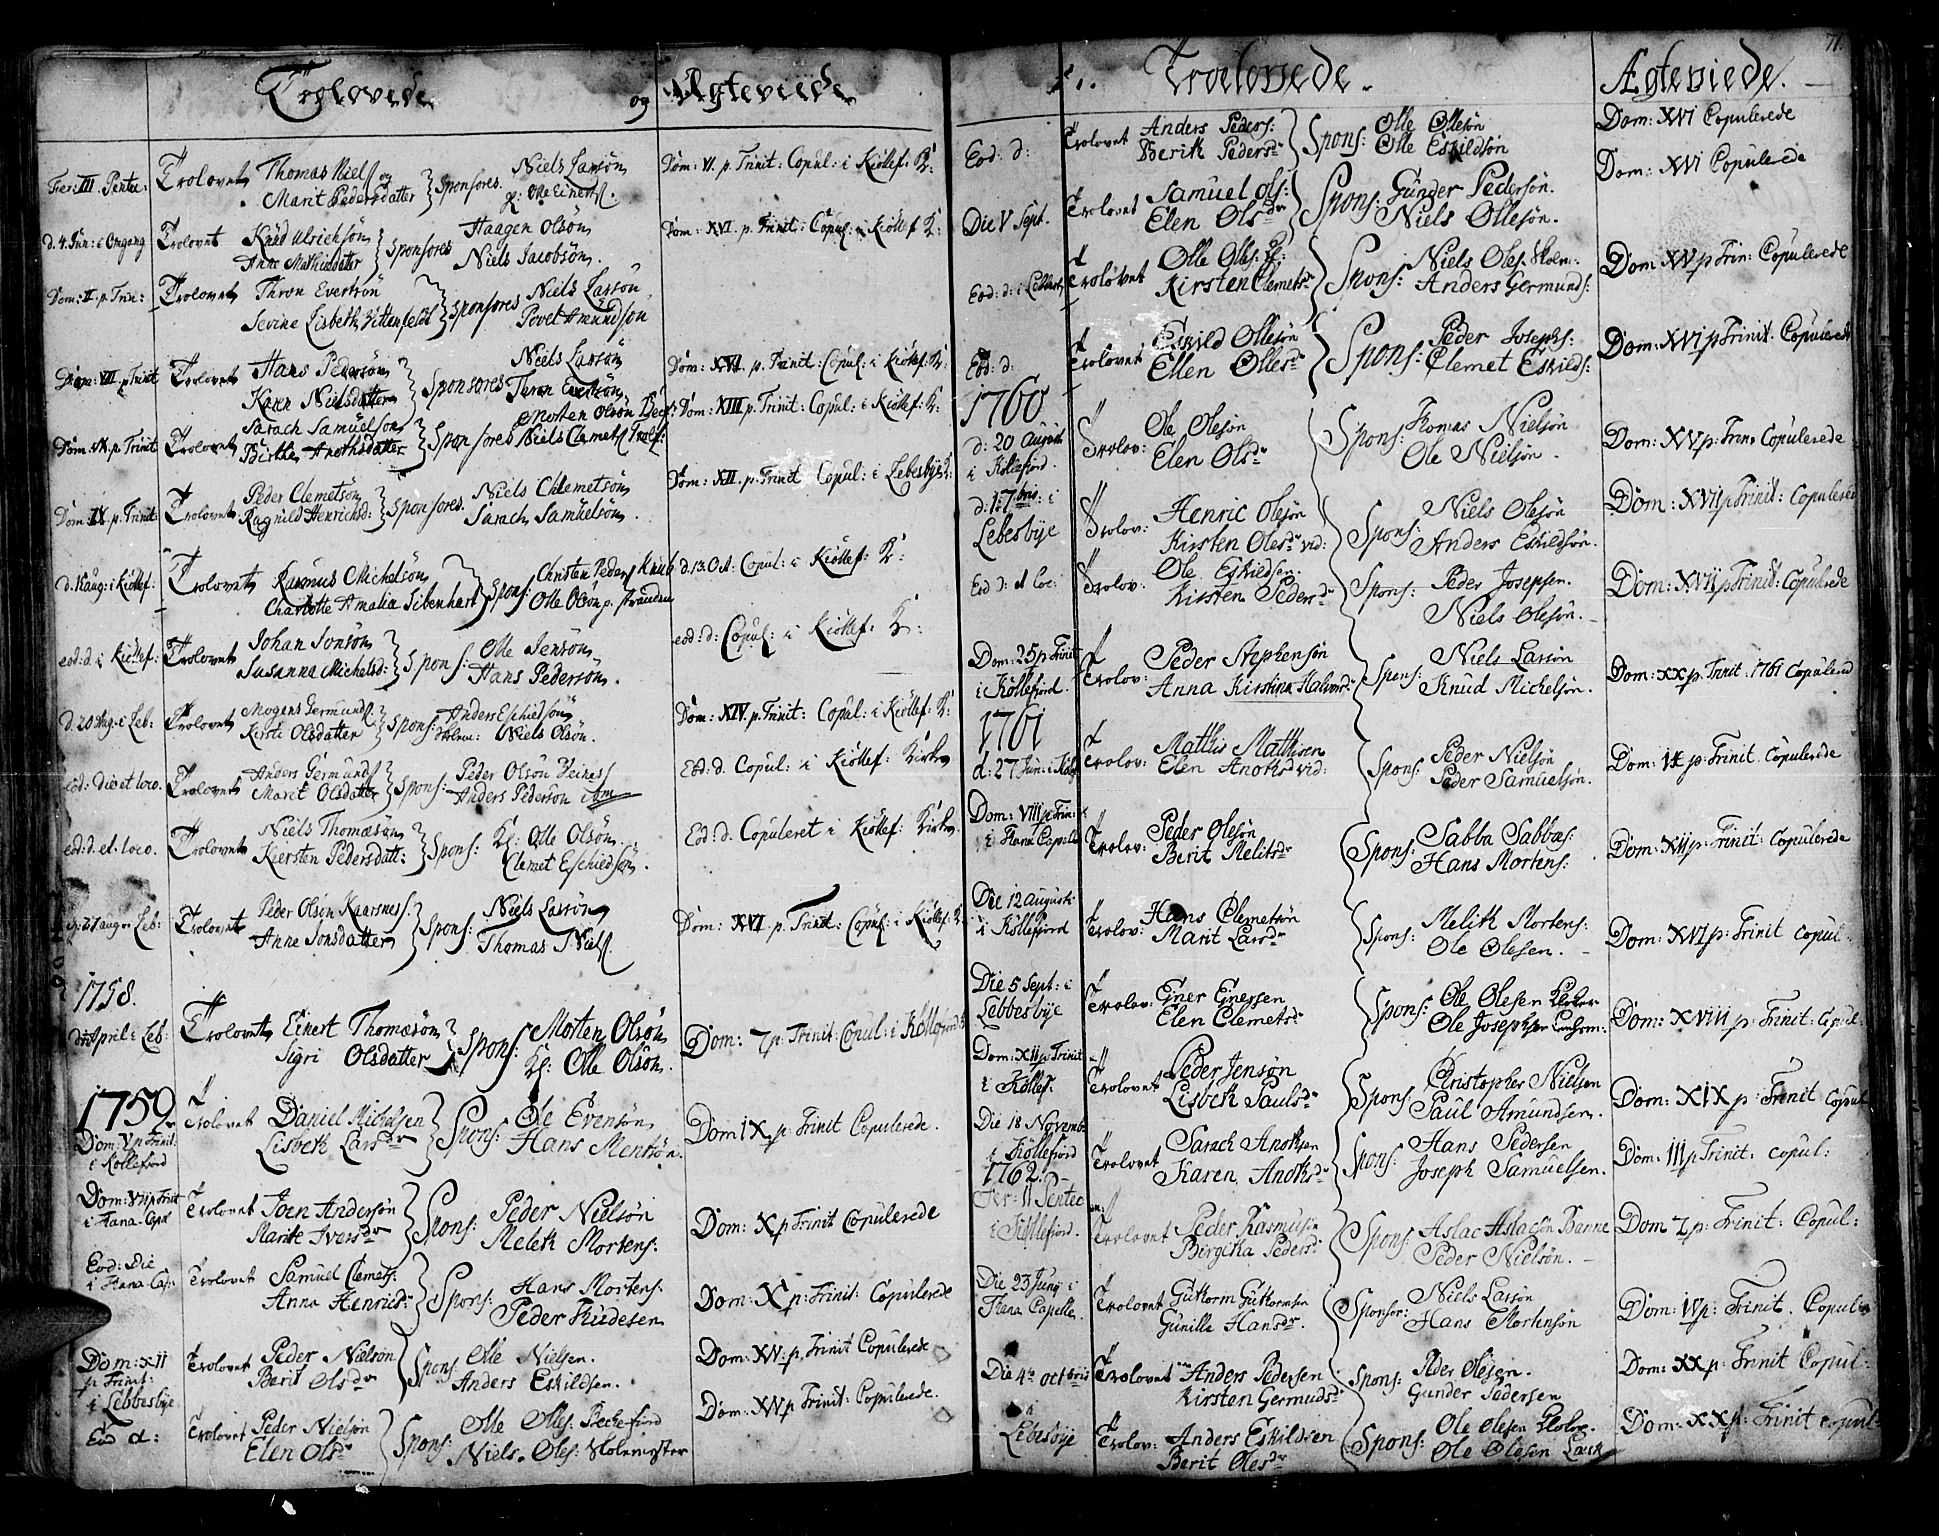 Trolovede og Ægteviede
Fer: III. Pentec: Trolovet Thomas Niels: og Marit Pedersdatter Sponsores Niels Larsøn Kl: Olle Einers: Dom: VI. p. Trinit: Copul: i Kiöllef: K:
d. 4. Jun: i Omgang Trolovet Knud Ulrichsön Anne Mathiisdatter Sponsores Haagen Olsön Niels Jacobsön. Dom: XVI. p. Trinit: Copul: i Kiöllef K:
Dom: II. p. Trin: Trolovet Thron Evertsön Sevine Lisbeth Sponsores Niels Larsön Povel Amundsön
Dom: VII. p. Trinit Trolovet Hans Pedersön Karen Nielsdatter Sponsores Niels Larsön Thron Evertsön Dom: XVI. p. Trinit: Copul: i Kiöllef: K:
Dom: IX. p. Trinit Trolovet Sarach Samuelsön Birthe Anothsdatter Sponsores Morten Olsön Niels Clemets: Dom: XIII p. Trinit: Copul: i Kiöllef: K:
Dom: IX. p. Trinit: Trolovet Peder Clemetsön Ragnild Henrichsd: Sponsores Niels Chlemetsön Sarach Samuelsön. Dom: XII. p. Trinit Copul: i Lebesbye K:
d. 18 aug: i Kiöllef: Trolovet Rasmus Michelsön Charlotte Amalia Sibenhert Spons: Christen Peders: Knub Olle Olsön p. Stranden d. 13. Oct. Copul: i Kiöllef: K:
eod: d. i Kiöllef: Trolovet Johan Jonsön Susanna Michelsd: Spons: Olle Jensön Hans Pedersön. eod: d: Copul: i Kiöllef: K:
d. 20 Aug: i Leb: Trolovet Mogens Germunds: Kirsti Olsdatter Spons: Anders Eschiedsön Niels Olsön. Dom: XIV. p. Trinit: Copul: i Kiöllef: K:
eod: Die et loco. Trolovet Anders Germunds: Marit Olsdatter Spons: Peder Olsön Anders Pederson Eod: d. Copul: i Kiöllef: Kirke
eod: d. et. loco. Trolovet Niels Thomæsön Kiersten Pedersdatt: Spons: Kl: Olle Olsön Clemet Eschiedsön. Eod: d. Copuleret i Kiöllef: Kirke.
d. 27 aug: i Leb: Trolovet Peder Olsön Kaarsness: Anne Jonsdatter Spons: Niels Larsön Thomas Niels: Dom: XVI. p. Trinit: Copul: i Kiöllef: K.
1758.
April i Leb: Trolovet Einert Thomæsön Sigri Olsdatter Spons: Morten Olsön Kl: Olle Olsön. Dom: 7 p: Trinit: Copul: i Köllefiord
1759.
Dom: V p: Trinit: i Köllefiord Trolovet Daniel Michelsen Lisbeth Larsdr Spons: Ole Evensön Hans Mentsön. Dom IX. p: Trinit Copulerede.
Dom: VII p Trinit i Tana Capel Trolovet Joen Andersön Marite Iversdr Spons: Peder Nielsön Melith Mortens: Dom: X p Trinit Copulerede
Eod: Die i Tana Cap: Trolovet Samuel Clemets: Anna Henrichsdr Spons: Hans Mortens: Peder Knudesen Dom: X p: Trinit: Copulerede
Dom: XII p Trinit: i Lebbesbÿe Trolovet Peder Nielsön Berit Olsdr Spons: Olle Nielsen. Anders Eskildsen. Dom: XV: p. Trinit Copulerede
Eod d: Trolovet Peder Nielsön Elen Olsdr Spons: Olle Olles: Niels. Oles: Skolemester Dom: XV p Trinit: Copulerede.
71.
Troelovede. Ægteviede.
Eod: d: Trolovet Anders Peders: Berith Pedersdr Spons: Olle Ollesön Olle Eskildsön Dom: XVI Copulerede
Die V Sept. Trolovet Samuel Ols: Elen Olsdr Spons: Gunder Pedersön. Niels Ollesön. Dom: XVI Copulerede
Eod: d: i Trolovet Olle Olles: Kirsten Clemetsdr Spons: Niels Oles: Skolm: Anders Germunds: Dom XV p Trin: Copulerede
Eod: d: Trolovet Eskild Ollesön Ellen Ollesdr Spons: Peder Josephs: Clemet Eskilds: Dom: XVI p Trinit: Copulerede
1760
d: 20 August i Köllefiord. Trolov: Ole Olesön Elen Olsdr Spons: Thomas Nielsön Ole Nielsön. Dom: XV p: Trin: Copulerede
d: 1 7bris: i Lebesbÿe Trolov: Henric Olesön Kirsten Olesdr vid: Spons: Niels Olesön Anders Eskildsön. Dom: XVII p Trinit: Copulerede
Eod d: et loc: Trolov: Ole Eskiedsen: Kirsten Pedersdr Spons: Peder Josepsen. Niels Olesön. Dom: XVII p Trinit: Copulerede
Dom: 25 p Trinit i Köllefiord. Trolov: Peder Stephensön Anna Kirstina Halvorsdr Spons: Niels Larsön Knud Michelsön. Dom: XX p. Trinit. 1761 Copulered
1761
d: 27 Jun: i Trolov: Mathis Mathisen Elen Anothsd vid: Spons: Peder Nielsön Peder Samuelsön. Dom: IX p: Trinit. Copulerede
Dom: VIII p Trin: i Tana Capell Trolov: Peder Olesön Berit Melitsdr Spons: Sabba Sabbas: Hans Mortens: Dom: XII p: Trinit: Copulerede
Die 12 august: i Köllefiord Trolov: Hans Clemetsön Marit Larsdr Spons: Melith Mortens: Ole Olesen. Dom: XVI p: Trinit Copul:
Die 5 Sept: i Lebbesbÿe Trolov: Einer Enersen Elen Clemetsdr Spons: Ole Olesen Ole Josephsen Dom: XVIII p: Trinit: Copul:
Dom: XII p: Trinit i Köllef: Trolovet Peder Jensön Lisbeth Paulsdr Spons: Christopher Nielsen Paul Amundsen. Dom: XIX p: Trinit Copul
Die 18 Novemb: i Köllefiord Trolovet Sarach Anothsen Karen Anothsdr Spons: Hans Pedersen Joseph Samuelsen. Dom: III p Trinit: copul:
1762.
Fer: II Pentec i Köllefiord. Trolovet Peder Rasmusön Birgitha Pedersdr Spons: Aslac Aslacsön Peder Nielsön. Dom 7 p: Trinit: Copul:
Die 23 Junÿ i Tana Capelle Trolovet Guttorm Guttormsen Gunille Hansdr Sponsor: Niels Larsön Hans Mortensön Dom: IV p: Trinit. Copul:
Die 4de Octbris Trolovet Anders Pedersen Kirsten Germudsdr Spons: Peder Olesen. Gunder Pedersen Dom: XX p: Trinit Copul:
i Lebesbÿe Trolov: Anders Eskildsen Berit Olesdr Spons: Ole Olesen Ole Olesen Dom: XX p: Trinit copul: